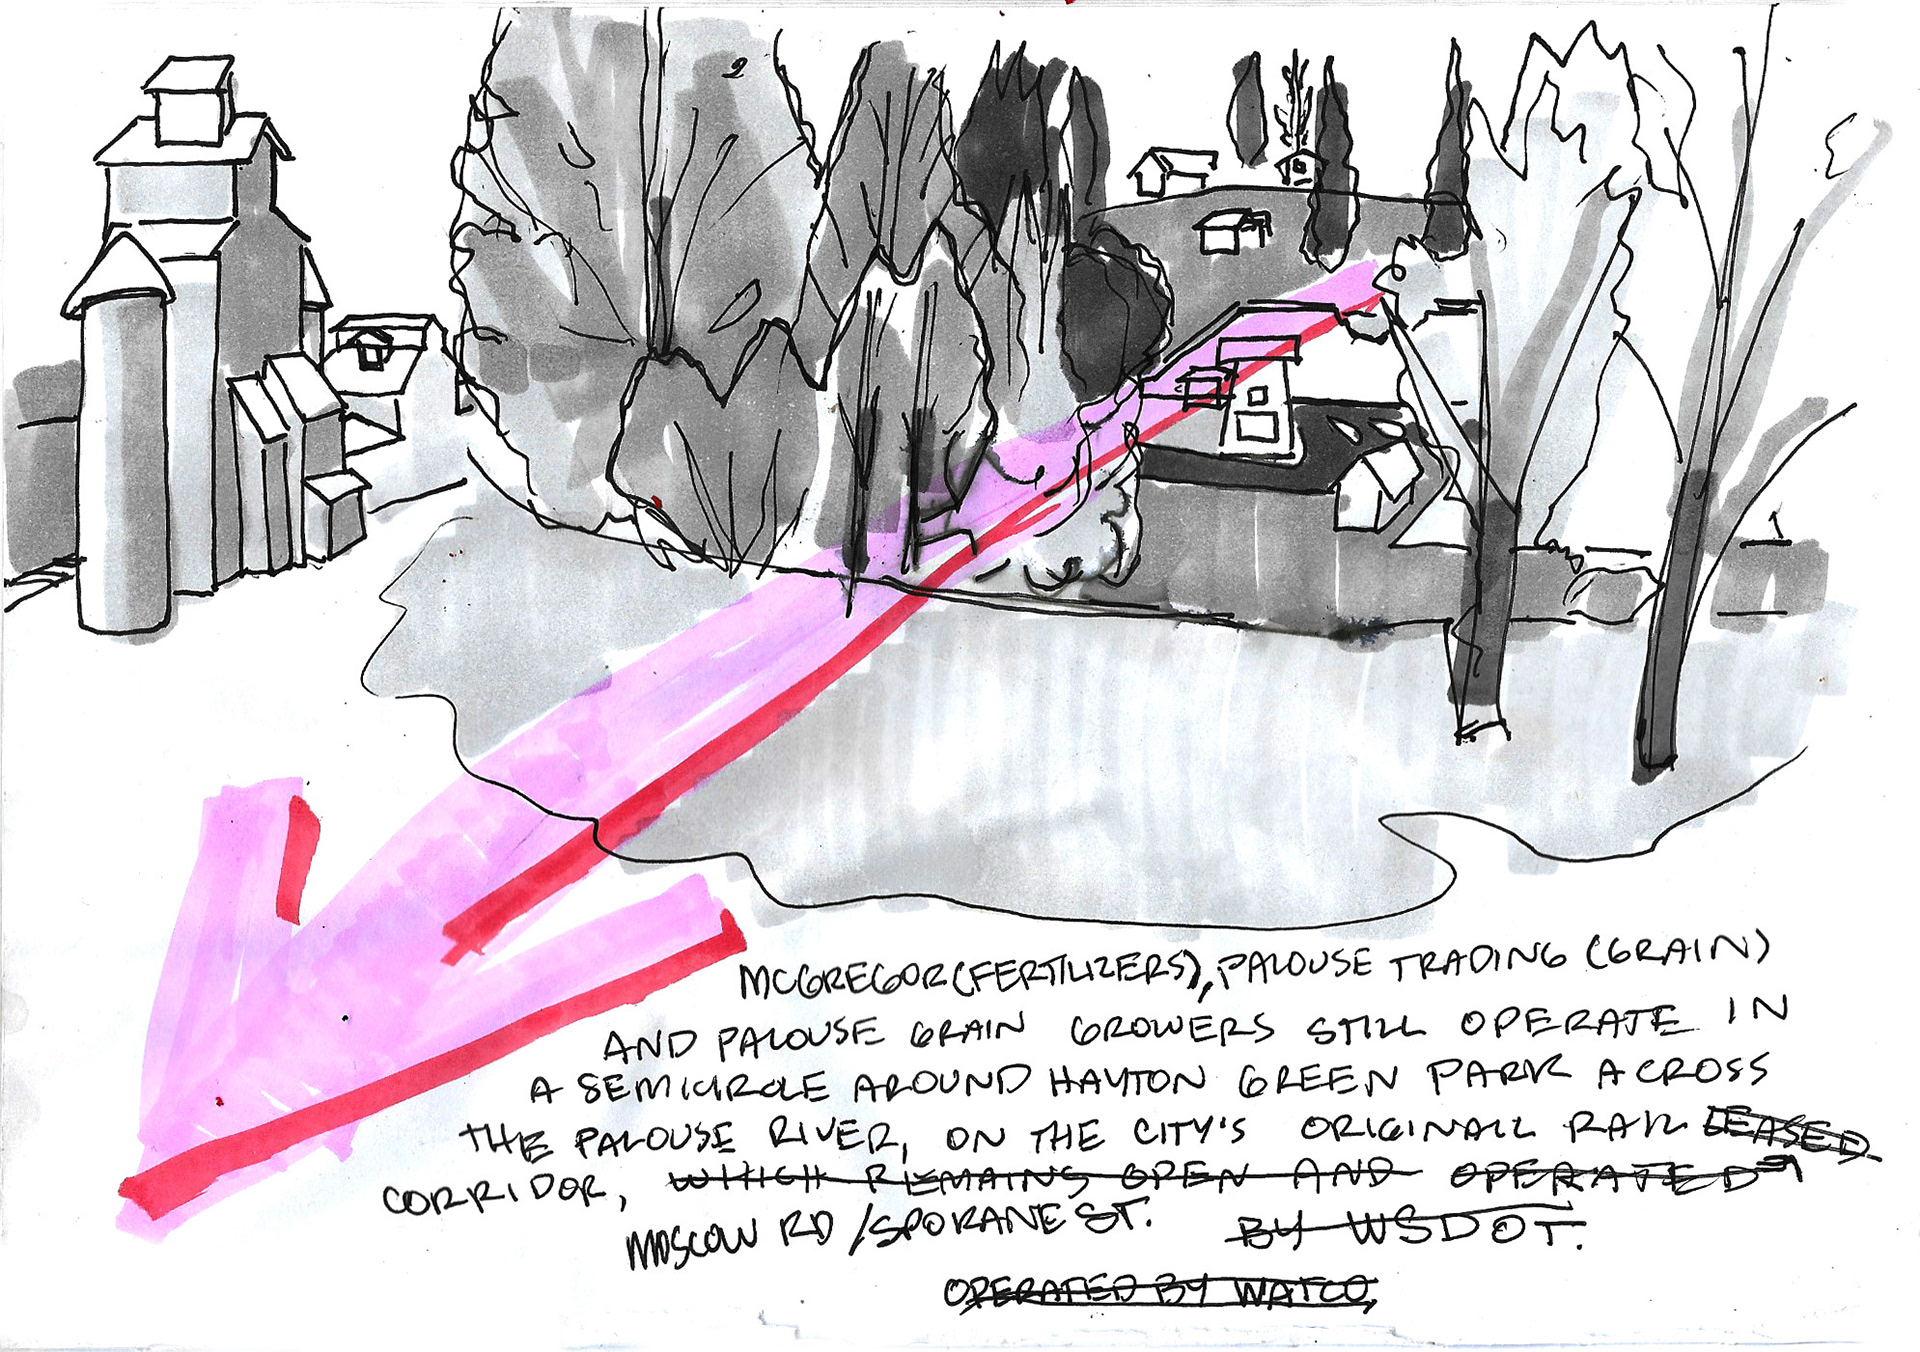 MCGREGOR (FERTILIZERS), PALOUSE TRADING (GRAIN)
AND PALOUSE GRAIN GROWERS STILL OPERATE IN
A SEMICIRCLE AROUND HAYTON GREEN PARK ACROSS
THE PALOUSE RIVER, ON THE CITY'S ORIGINALL RAIL LEASED
CORRIDOR, WHICH REMAINS OPEN AND OPERATED
MOSCOW RD / SPOKANE ST. BY WSDOT.
OPERATED BY WATCO,